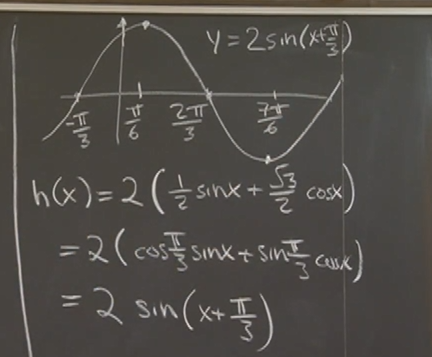 y = 2 sin(x+π/3)
-π/3 π/6 2π/3 7π/6
h(x) = 2 ( 1/2 sinx + √3/2 cosx )
= 2 ( cos π/3 sinx + sin π/3 cosx )
= 2 sin(x+π/3)